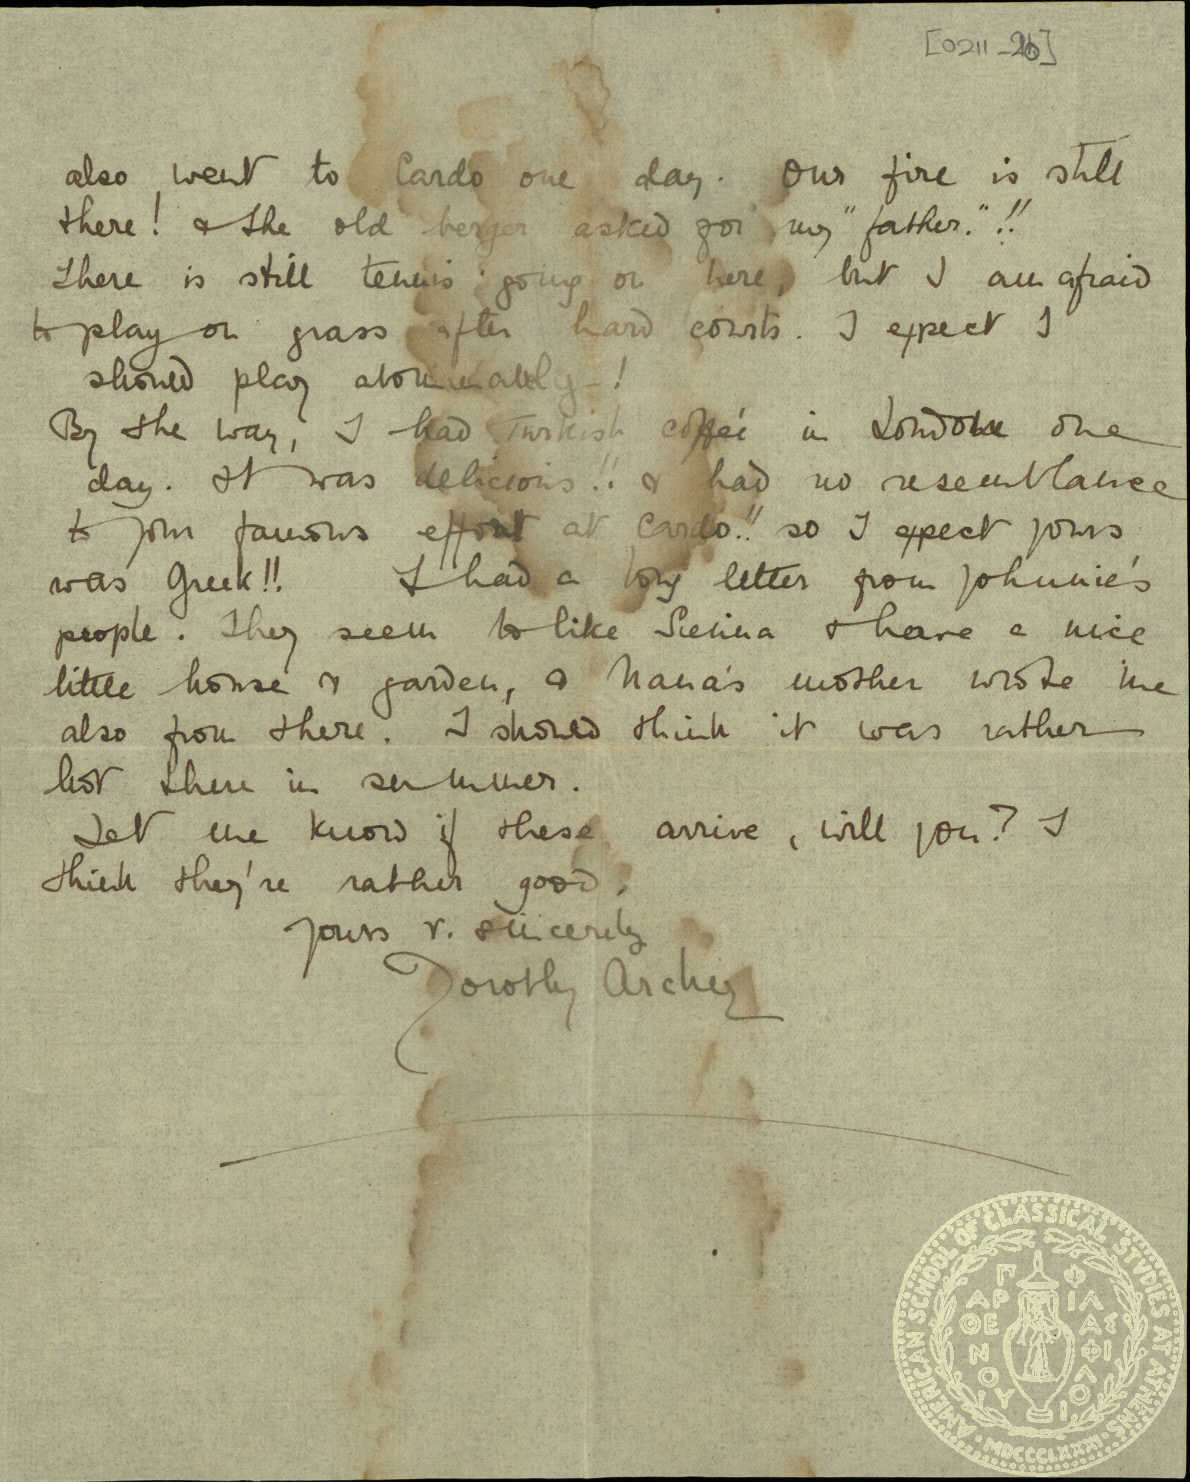 [0211-2b]
also went to Cardo one day. Our fire is still
there! & the old berger asked for my "father."!!
There is still tennis going on here, but I am afraid
to play on grass after hard courts. I expect I
should play abominably-!
By the way, I had Turkish coffee in London one
day. It was delicious!! & had no resemblance
to your famous effort at Cardo!! so I expect yours
was Greek!! I had a long letter from Johnnie's
people. They seem to like Sienna & have a nice
little house & garden, & Nana's mother wrote me
also from there. I should think it was rather
hot there in summer.
Let me know if these arrive, will you? I
think they're rather good.
Yours v. sincerely
Dorothy Archer
AMERICAN SCHOOL OF CLASSICAL STVDIES AT ATHENS
·MDCCCLXXXI·
ΠΑΡΘΕΝΟΥ
ΦΙΛΑΣ ΦΙΛΟΙ